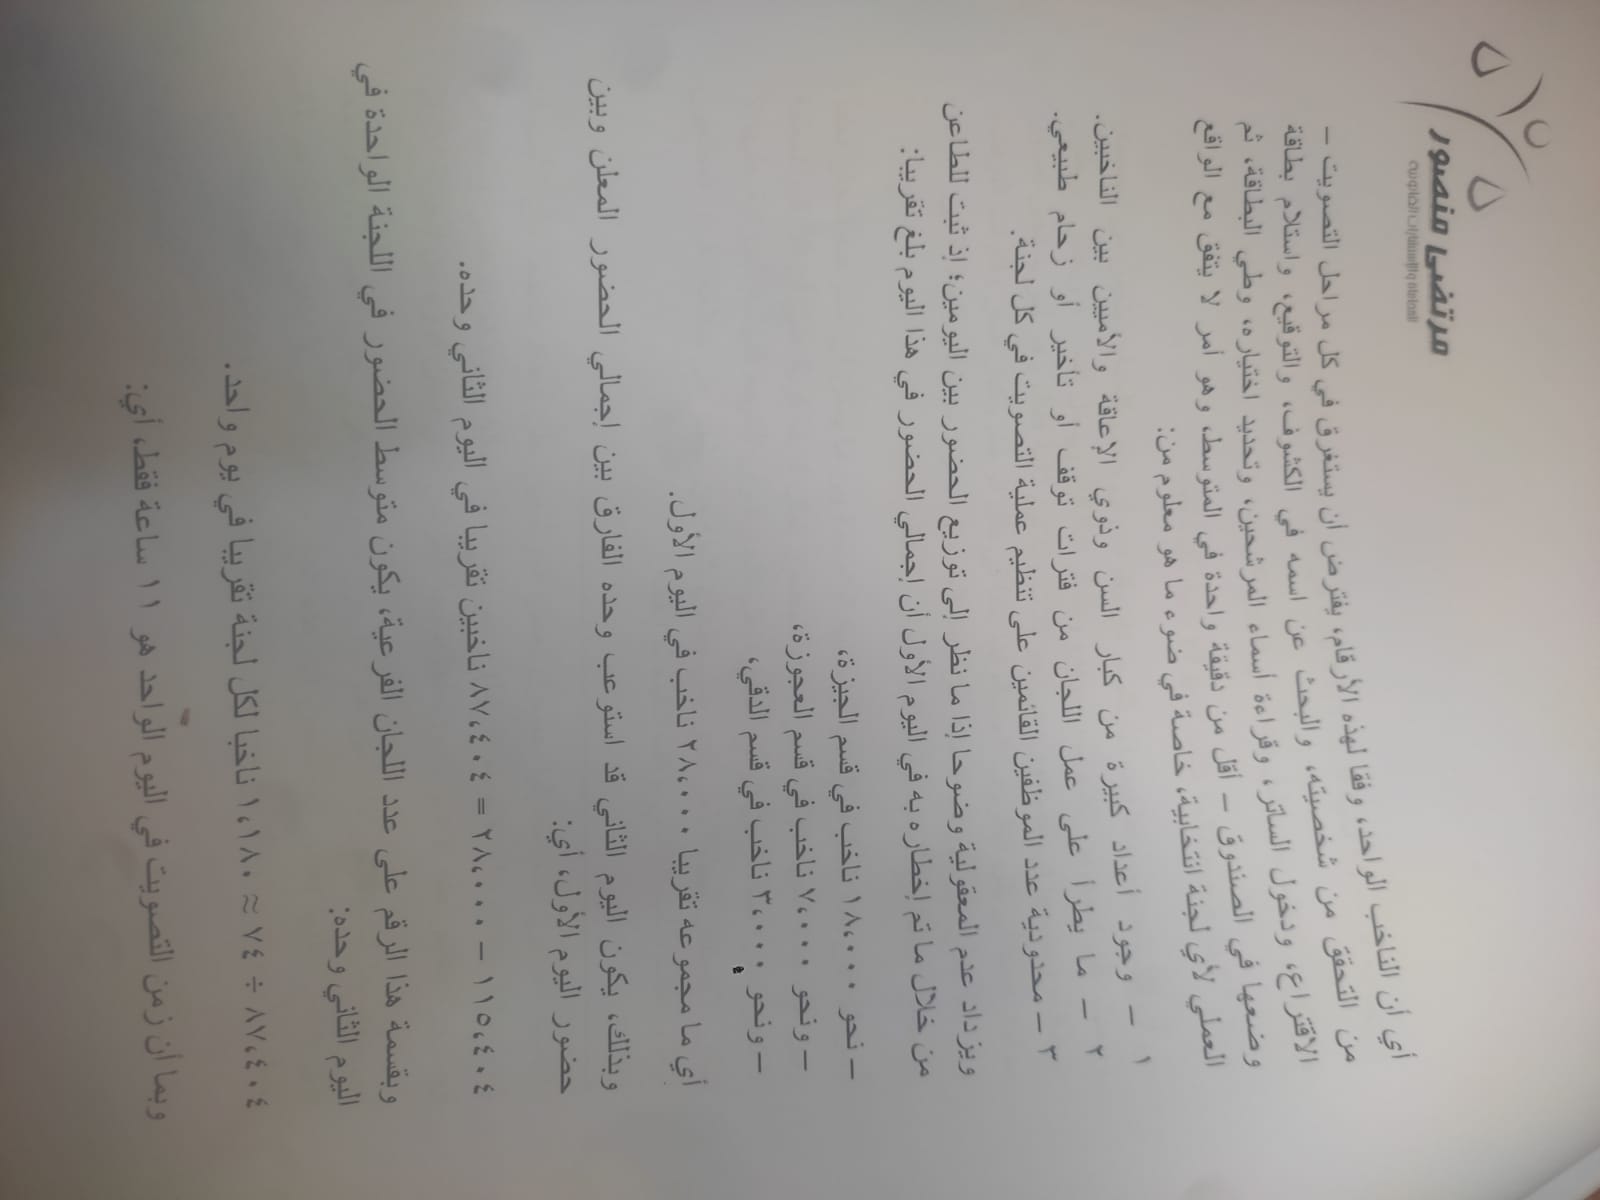 مرتضى منصور
للمحاماه والاستشارات القانونية
أي أن الناخب الواحد، وفقا لهذه الأرقام، يفترض أن يستغرق في كل مراحل التصويت –
من التحقق من شخصيته، والبحث عن اسمه في الكشوف، والتوقيع، واستلام بطاقة
الاقتراع، ودخول الساتر، وقراءة أسماء المرشحين، وتحديد اختياره، وطي البطاقة، ثم
وضعها في الصندوق – أقل من دقيقة واحدة في المتوسط، وهو أمر لا يتفق مع الواقع
العملي لأي لجنة انتخابية، خاصة في ضوء ما هو معلوم من:
١ – وجود أعداد كبيرة من كبار السن وذوي الإعاقة والأميين بين الناخبين.
٢ – ما يطرأ على عمل اللجان من فترات توقف أو تأخير أو زحام طبيعي.
٣ – محدودية عدد الموظفين القائمين على تنظيم عملية التصويت في كل لجنة.
ويزداد عدم المعقولية وضوحا إذا ما نظر إلى توزيع الحضور بين اليومين؛ إذ ثبت للطاعن
من خلال ما تم إخطاره به في اليوم الأول أن إجمالي الحضور في هذا اليوم بلغ تقريبا:
– نحو ١٨،٠٠٠ ناخب في قسم الجيزة،
– ونحو ٧،٠٠٠ ناخب في قسم العجوزة،
– ونحو ٣،٠٠٠ ناخب في قسم الدقي،
أي ما مجموعه تقريبا ٢٨،٠٠٠ ناخب في اليوم الأول.
وبذلك، يكون اليوم الثاني قد استوعب وحده الفارق بين إجمالي الحضور المعلن وبين
حضور اليوم الأول، أي:
١١٥،٤٠٤ – ٢٨،٠٠٠ = ٨٧،٤٠٤ ناخبين تقريبا في اليوم الثاني وحده.
وبقسمة هذا الرقم على عدد اللجان الفرعية، يكون متوسط الحضور في اللجنة الواحدة في
اليوم الثاني وحده:
٨٧،٤٠٤ ÷ ٧٤ ≈ ١،١٨٠ ناخبا لكل لجنة تقريبا في يوم واحد.
وبما أن زمن التصويت في اليوم الواحد هو ١١ ساعة فقط، أي: